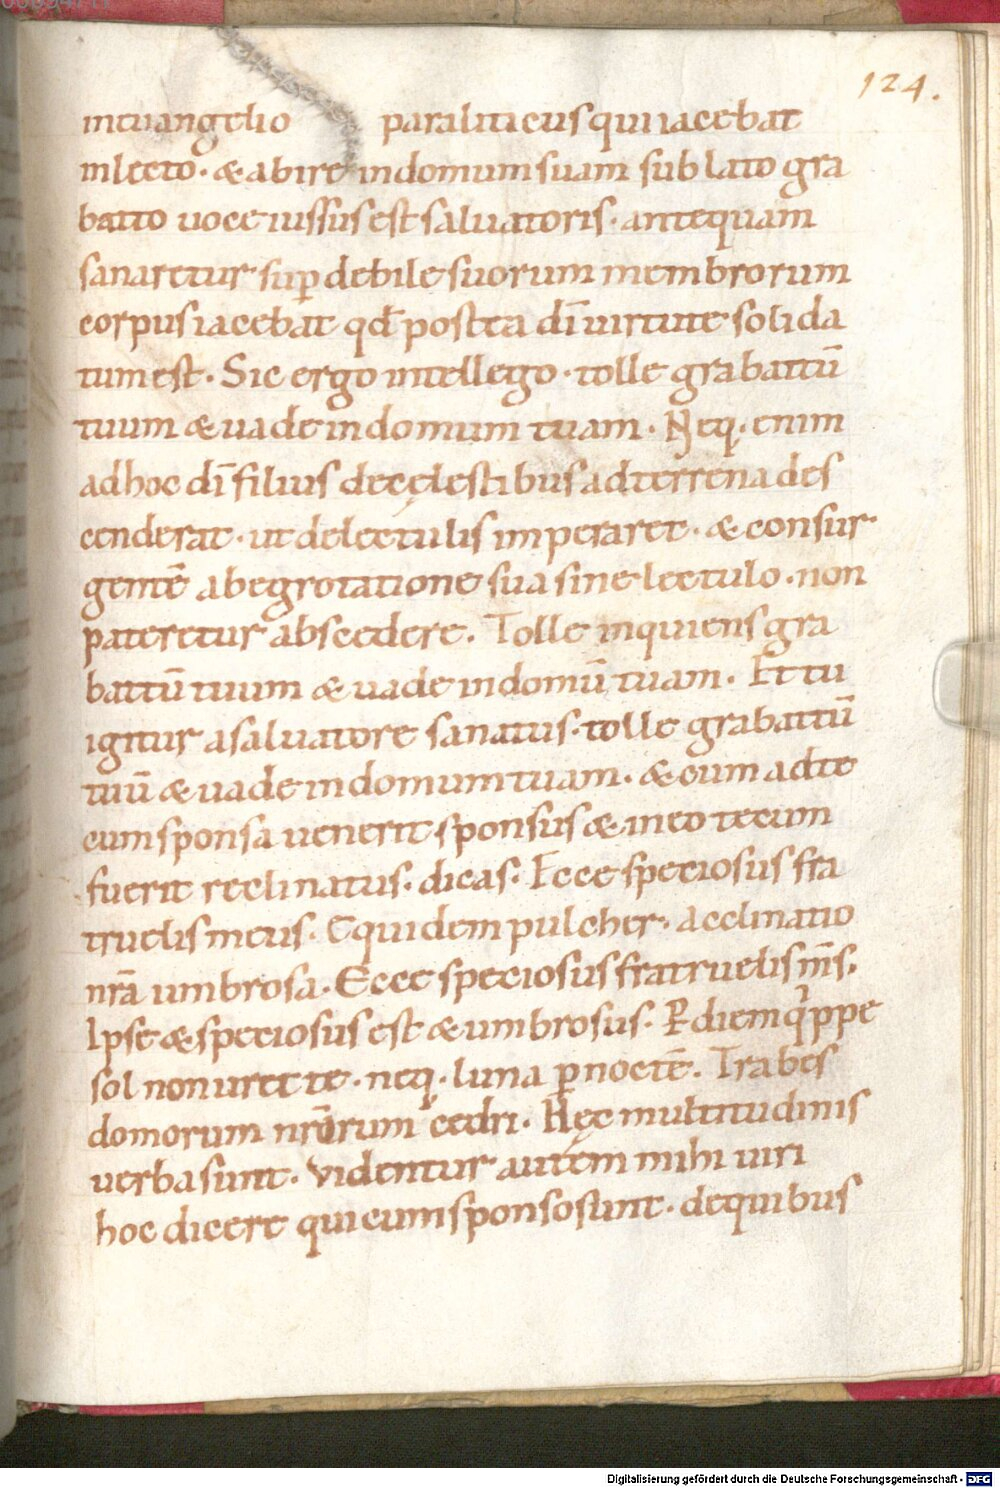 124.
ineuangelio paraliticus qui iacebat
inlecto · & abire indomum suam sublato gra
batto uoce iussus est saluatoris · antequam
sanaretur sup̄ debile suorum membrorum
corpus iacebat qđ postea dī uirtute solida
tum est · Sic ergo intellego · tolle grabattū
tuum & uade indomum tuam · Neq · enim
adhoc dī filius decęlestibus adterrena des
cenderat · ut delectulis imperaret · & consur
gentē abegrotatione sua sine lectulo · non
pateretur abscedere. Tolle inquiens gra
battū tuum & uade indomū tuam · Et tu
igitur asaluatore sanatus · tolle grabattū
tuū & uade indomum tuam · & cum adte
cum sponsa uenerit sponsus & ineo tecum
fuerit reclinatus · dicas · Ecce speciosus fra
truelis meus · Equidem pulcher · acclinatio
nrā umbrosa · Ecce speciosus fratruelis m̄s ·
Ipse & speciosus est & umbrosus · P̲ diem quippe
sol non uret te · neq · luna p̲ noctē. Trabes
domorum nrōrum cedri · Hęc multitudinis
uerba sunt · Videntur autem mihi uiri
hoc dicere qui cum sponso sunt · dequibus
Digitalisierung gefördert durch die Deutsche Forschungsgemeinschaft - DFG